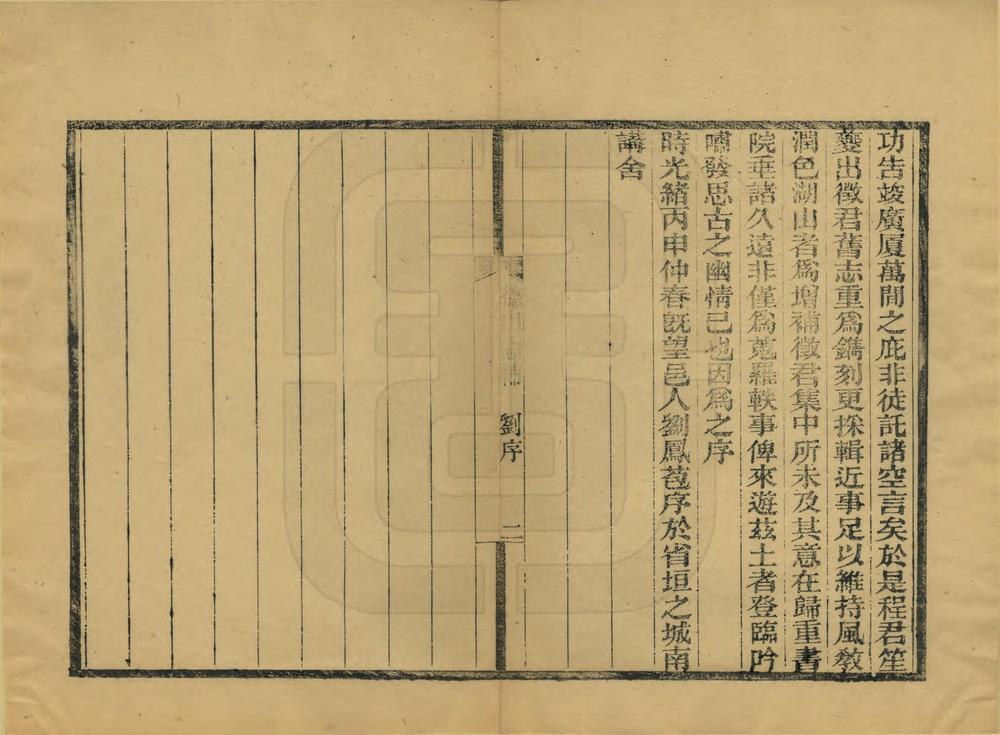 功告竣廣厦萬間之庇非徒託諸空言矣於是程君笙
出徵君舊志重爲鐫刻更採輯近事足以維持風敎
潤色湖山者爲增補徵君集中所未及其意在歸重書
院垂諸久遠非僅爲蒐羅軼事俾來遊茲土者登臨吟
嘯發思古之幽情已也因爲之序
時光緒丙申仲春旣望邑人劉鳳苞序於省垣之城南
講舍
劉序
二